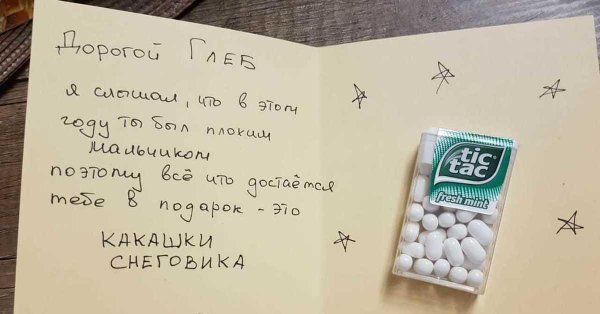 Дорогой Глеб
я слышал, что в этом
году ты был плохим
мальчиком
поэтому всё что достаётся
тебе в подарок - это
КАКАШКИ
СНЕГОВИКА
tic
tac
fresh mint